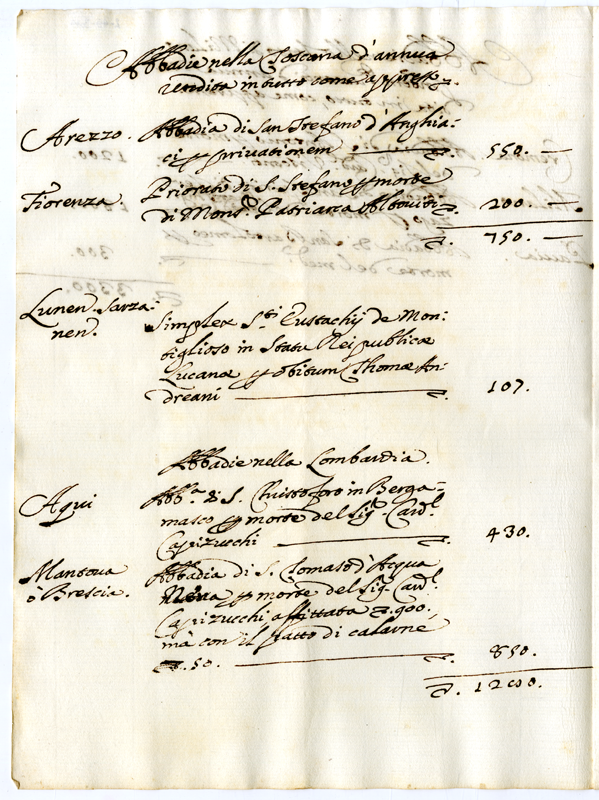 Abbadie nella Toscana d'annua
rendita in tutto come appresso
Arezzo. Abbadia di San Stefano d'Anghia:
ci p privationem ∇. 550. —
Fiorenza. Priorato di S. Stefano p morte
di Mons.r Patriarca Altoviti ∇. 200. —
∇. 750. —
Lunen. Sarza:
nen. Simplex S.ti Eustachij de Mon:
tiglioso in Statu Reipublicæ
Lucanæ p obitum Thomæ An:
dreani ∇. 107.
Abbadie nella Lombardia.
Aqui Abb.a di S. Christoforo in Berga:
masco p morte del Sig.r Card.l
Capizucchi ∇. 430.
Mantova
ò Brescia. Abbadia di S. Tomaso d'Acqua
Negra p morte del Sig.r Card.l
Capizucchi, affittata ∇. 900,
mà con il patto di calarne
∇. 50. ∇. 850.
∇. 1200.